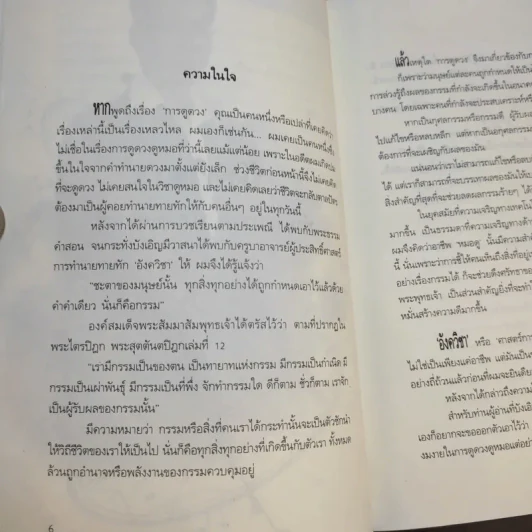 ความในใจ
หากพูดถึงเรื่อง 'การดูดวง' คุณเป็นคนหนึ่งหรือเปล่าที่เคยคิดว่า
เรื่องเหล่านี้เป็นเรื่องเหลวไหล ผมเองก็เช่นกัน... ผมเคยเป็นคนหนึ่งซึ่ง
ไม่เชื่อในเรื่องการดูดวงดูหมอที่ว่านี้เลยแม้แต่น้อย เพราะในอดีตผมเกิด
ขึ้นในใจจากคำทำนายดวงมาตั้งแต่ยังเล็ก ช่วงชีวิตก่อนหน้านี้จึงไม่เคยคิด
ที่จะดูดวง ไม่เคยสนใจในวิชาดูหมอ และไม่เคยคิดเลยว่าชีวิตจะกลับตาลปัตร
ต้องมาเป็นผู้คอยทำนายทายทักให้กับคนอื่นๆ อยู่ในทุกวันนี้
หลังจากได้ผ่านการบวชเรียนตามประเพณี ได้พบกับพระธรรม
คำสอน จนกระทั่งบังเอิญมีวาสนาได้พบกับครูบาอาจารย์ผู้ประสิทธิ์ศาสตร์
การทำนายทายทัก 'อังควิชา' ให้ ผมจึงได้รู้แจ้งว่า
"ชะตาของมนุษย์นั้น ทุกสิ่งทุกอย่างได้ถูกกำหนดเอาไว้แล้วด้วย
คำคำเดียว นั่นก็คือกรรม"
องค์สมเด็จพระสัมมาสัมพุทธเจ้าได้ตรัสไว้ว่า ตามที่ปรากฏใน
พระไตรปิฎก พระสุตตันตปิฎกเล่มที่ 12
"เรามีกรรมเป็นของตน เป็นทายาทแห่งกรรม มีกรรมเป็นกำเนิด มี
กรรมเป็นเผ่าพันธุ์ มีกรรมเป็นที่พึ่ง จักทำกรรมใด ดีก็ตาม ชั่วก็ตาม เราจัก
เป็นผู้รับผลของกรรมนั้น"
มีความหมายว่า กรรมหรือสิ่งที่คนเราได้กระทำนั้นจะเป็นตัวชักนำ
ให้วิถีชีวิตของเราให้เป็นไป นั่นก็คือทุกสิ่งทุกอย่างที่เกิดขึ้นกับตัวเรา ทั้งหมด
ล้วนถูกอำนาจหรือพลังงานของกรรมควบคุมอยู่
6
แล้วเหตุใด 'การดูดวง' จึงมาเกี่ยวข้องกับ
ก็เพราะว่ามนุษย์แต่ละคนถูกกำหนดให้เป็น
การล่วงรู้ถึงผลของกรรมที่จะเกิดขึ้นในอนาคต
บางคน โดยเฉพาะคนที่กำลังจะประสบเคราะห์
หากเป็นกุศลกรรมหรือกรรมดี ผู้รับ
ไปแก้ไขหรือหลบหลีก แต่หากเป็นอกุศลกรรม
ต้องการที่จะเผชิญกับผลของมัน
แน่นอนว่าเราไม่สามารถแก้ไขหรือลบ
ได้ แต่เราก็สามารถที่จะบรรเทาผลของมันให้เบา
สิ่งสำคัญที่สุดที่จะช่วยลดผลกรรมร้ายๆ ได้
ในยุคสมัยที่ความเจริญทางเทคโน
มากขึ้น เป็นธรรมดาที่ความเจริญทางด้าน
ผมจึงคิดว่าอาชีพ 'หมอดู' นั้นเมื่อมีความ
นี้ นั่นเพราะว่าการชี้ให้คนเห็นถึงสิ่งที่อยู่
อย่างเรื่องกรรมได้ ก็จะช่วยดึงศรัทธาของ
พระพุทธเจ้า เป็นส่วนสำคัญยิ่งที่จะทำ
หมั่นสร้างความดีมากขึ้น
'อังควิชา' หรือ 'ศาสตร์การ
ไม่ใช่เป็นเพียงแค่อาชีพ แต่มันเป็น
อย่างถี่ถ้วนแล้วก่อนที่ผมจะยินดี
หลังจากได้กล่าวถึงความ
สำหรับท่านผู้อ่านที่บังเอิญ
เองก็อยากจะขอออกตัวเอาไว้ว่า
งมงายในการดูดวงดูหมอแต่อย่าง